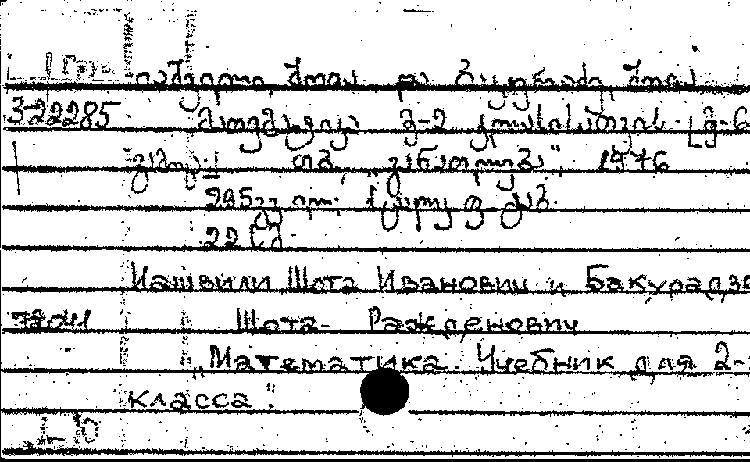 იაშვილი, შოთა და ბაკურაძე, შოთა
3-22285 მათემატიკა მ-2 კლასისათვის. [მე-6
გამოც.] თბ., „განათლება", 1976
295 გვ. ილ; 1 ცალკე ფ. ყდ.
22 სმ.
Иашвили Шота Иванович и Бакурадзе
72011 Шота Ражденович
„Математика. Учебник для 2-
класса".